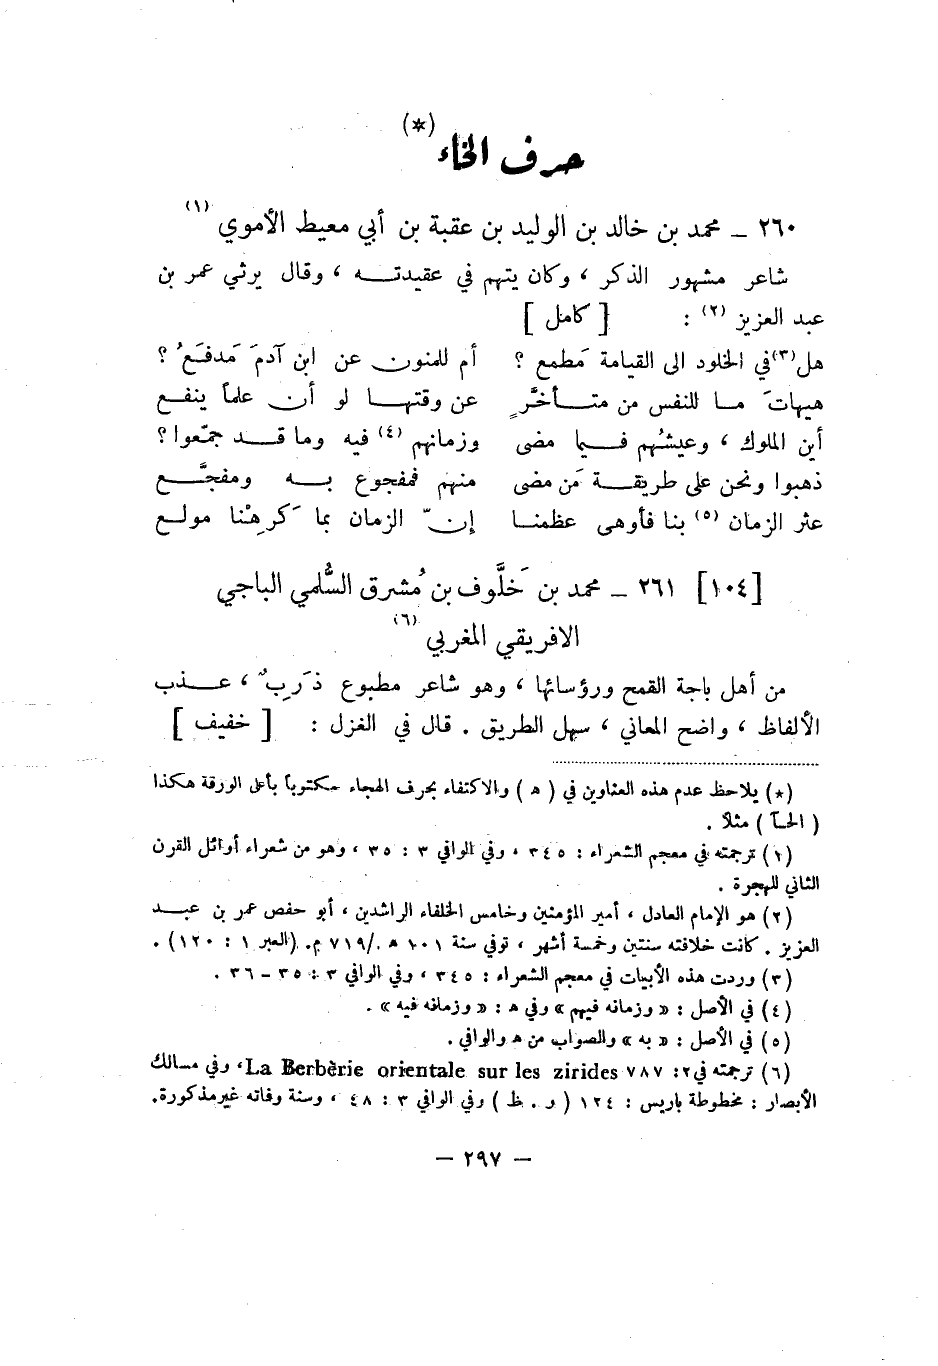 حرف الخاء (*)
٢٦٠ ــ محمد بن خالد بن الوليد بن عقبة بن أبي معيط الأموي (١)
شاعر مشهور الذكر ، وكان يتهم في عقيدته ، وقال يرثي عمر بن
عبد العزيز (٢) : [ كامل ]
هل (٣) في الخلود الى القيامة مَطمع ؟ أم للمنون عن ابن آدمَ مَدفَعُ ؟
هيهاتَ ما للنفس من متأخَّرٍ عن وقتها لو أن علماً ينفع
أين الملوك ، وعيشُهم فيما مضى وزمانهم (٤) فيه وما قد جمّعوا ؟
ذهبوا ونحن على طريقة مَن مضى منهم فمفجوع به ومفجَّع
عثر الزمان (٥) بنا فأوهى عظمنا إنّ الزمان بما كَرِهْنا مولع
[١٠٤] ٢٦١ ــ محمد بن خَلَّوف بن مُشرق السُّلمي الباجي
الافريقي المغربي (٦)
من أهل باجة القمح ورؤسائها ، وهو شاعر مطبوع ذَرِبٌ ، عذب
الألفاظ ، واضح المعاني ، سهل الطريق . قال في الغزل : [ خفيف ]
(*) يلاحظ عدم هذه العناوين في ( ه ) والاكتفاء بحرف الهجاء مكتوباً بأعلى الورقة هكذا
( الخآ ) مثلاً .
(١) ترجمته في معجم الشعراء : ٣٤٥ ، وفي الوافي ٣ : ٣٥ ، وهو من شعراء أوائل القرن
الثاني للهجرة .
(٢) هو الإمام العادل ، أمير المؤمنين وخامس الخلفاء الراشدين ، أبو حفص عمر بن عبد
العزيز . كانت خلافته سنتين وخمسة أشهر ، توفي سنة ١٠١ ه ./٧١٩ م. (العبر ١ : ١٢٠) .
(٣) وردت هذه الأبيات في معجم الشعراء : ٣٤٥ ، وفي الوافي ٣ : ٣٥ – ٣٦ .
(٤) في الأصل : « وزمانه فيهم » وفي ه : « وزمانه فيه » .
(٥) في الأصل : « به » والصواب من ه والوافي .
(٦) ترجمته في La Berbèrie orientale sur les zirides ٢: ٧٨٧، وفي مسالك
الأبصار : مخطوطة باريس : ١٢٤ ( و . ظ ) وفي الوافي ٣ : ٤٨ ، وسنة وفاته غير مذكورة.
— ٢٩٧ —